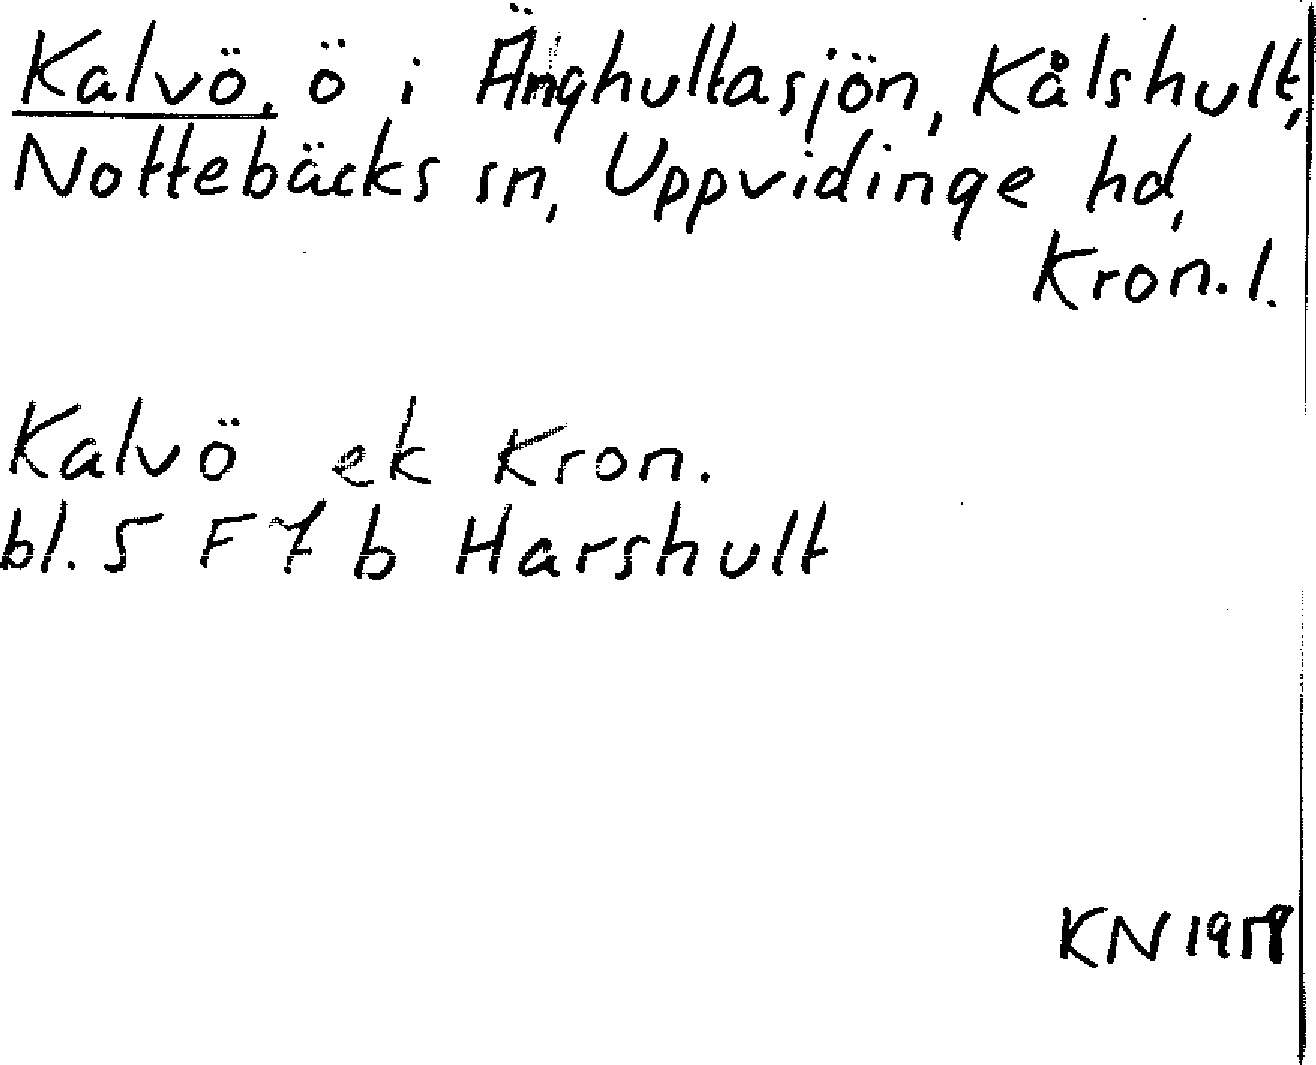 Kalvö, ö i Änghultasjön, Kålshult,
Nottebäcks sn, Uppvidinge hd,
Kron. l.
Kalvö ek Kron.
bl. 5 F 7 b Harshult
KN